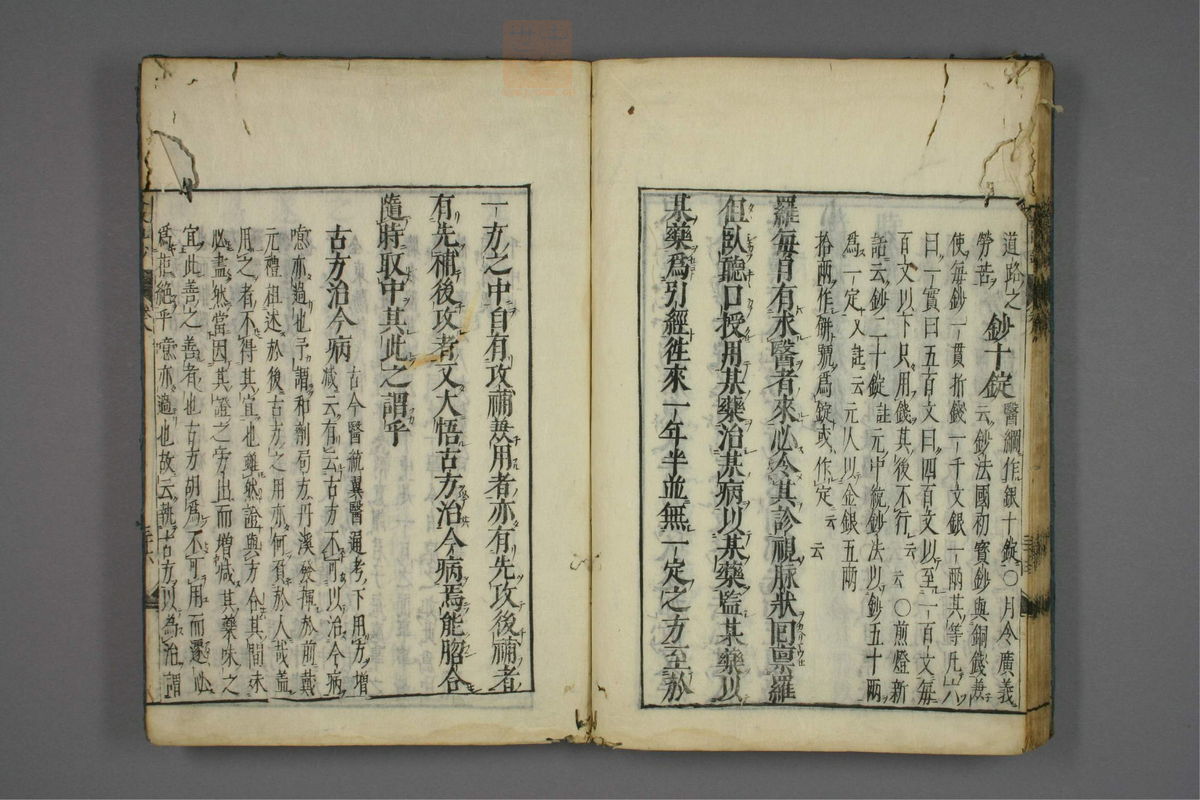 道路之
勞苦
鈔十錠
醫綱作銀十錠○月令廣義
云鈔法國初寳鈔與銅錢兼
使每鈔一貫折銭一千文銀一兩其等凡六
曰一實曰五百文曰四百文以至一百文每
百文以下只用錢其後不行云云○煎燈新
話云鈔二十錠註元中統鈔法以鈔五十兩
爲一定又註云元人以金銀五兩
拾兩作餅號爲錠或作定云云
羅每日有求醫者來必令其診視脉狀回禀羅
但臥聽口授用某藥治某病以某藥監某藥以
某藥爲引經徃來一年半並無一定之方至於
一方之中自有攻補兼用者亦有先攻後補者
有先補後攻者又大悟古方治今病焉能脗合
隨時取中其此之謂乎
古方治今病
古今醫統翼醫通考下用方增
减云有云古方不可以治今病
噫亦過也予謂和劑局方丹溪發揮於前戴
元禮祖述於後古方之用亦何有於人哉盖
用之者不得其宜也雖然證與方合其間未
必盡然當因其證之
出而增减其藥味之
宜此善之善者也古方胡爲不可用而遽必
爲拒絶乎噫亦過也故云執古方以為治謂